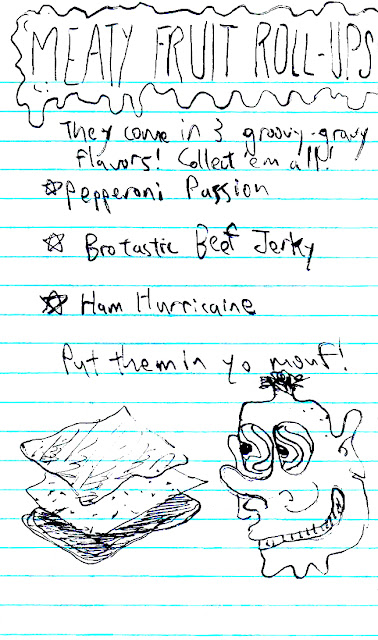 MEATY FRUIT ROLL-UPS
They come in 3 groovy-gravy
flavors! Collect 'em all!
Pepperoni Passion
Brotastic Beef Jerky
Ham Hurricaine
Put them in yo mouf!